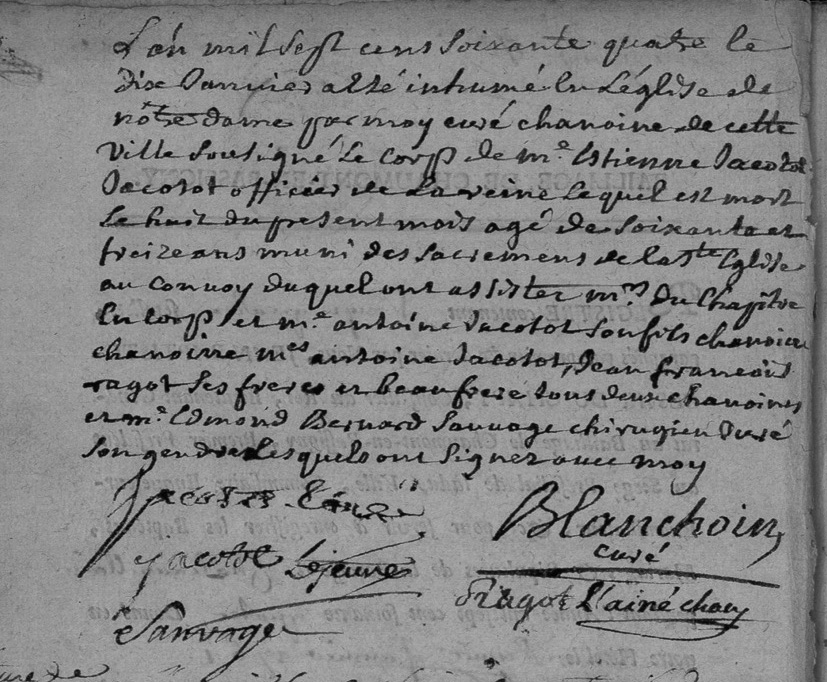 L'an mil sept cens soixante quatre le
dix Janvier a été inhumé en L'église de
nôtre dame par moy curé chanoine de cette
ville soussigné Le corps de m.e Estienne Jacotot
Jacotot officier de La reine Lequel est mort
Le huit du present mois agé de soixante et
treize ans muni des sacremens de la Ste Eglise
au convoy duquel ont assister mrs Du Chapitre
En corps et m.e antoine Jacotot son fils chanoine
chanoine mes antoine Jacotot, Jean francois
ragot ses freres et beaufrere tous deux chanoines
et m.e Edmond Bernard Sauvage chirugien Juré
son gendre Lesquels ont Signez avec moy
Jacotot L'ainé
Blanchoin
curé
Jacotot Lejeune
Ragot L'ainé chan
Sauvage